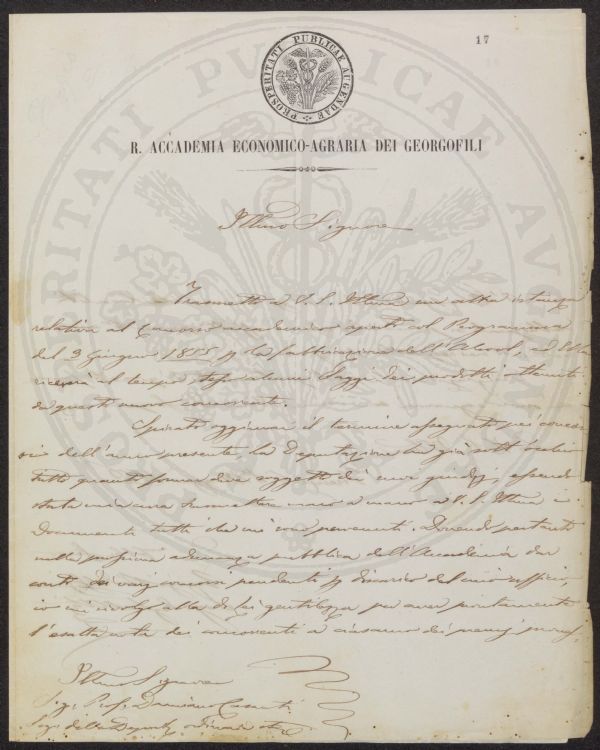 17
PROSPERITATI PUBLICAE AUGENDAE
R. ACCADEMIA ECONOMICO-AGRARIA DEI GEORGOFILI
Illmo Signore
Trasmetto a V. S. Illma una altra istanza
relativa al Concorso accademico aperto col Programma
del 3 Giugno 1855 p la fabbricazione dell'Alcool, ed Ella
riceverà al tempo stesso alcuni Saggi dei prodotti ottenuti
da questi nuovi concorrenti.
Spirato oggi il termine assegnato pei concor
si dell'anno presente, la Deputazione ha già sott'occhio
tutto quanto forma dee soggetto dei suoi giudizj, essendo
stata mia cura trasmettere mano a mano a V. S. Illma i
Documenti tutti che mi son pervenuti. Dovendo pertanto
nella prossima adunanza pubblica dell'Accademia dar
conto dei varj concorsi pendenti p discarico del mio ufficio,
io mi rivolgo alla di Lei gentilezza per aver prontamente
l'esatta nota dei concorrenti a ciascuno dei premj
Illmo Signore
Sig. Prof. Damiano Casanti
Seg. della Deputaz. ordinaria